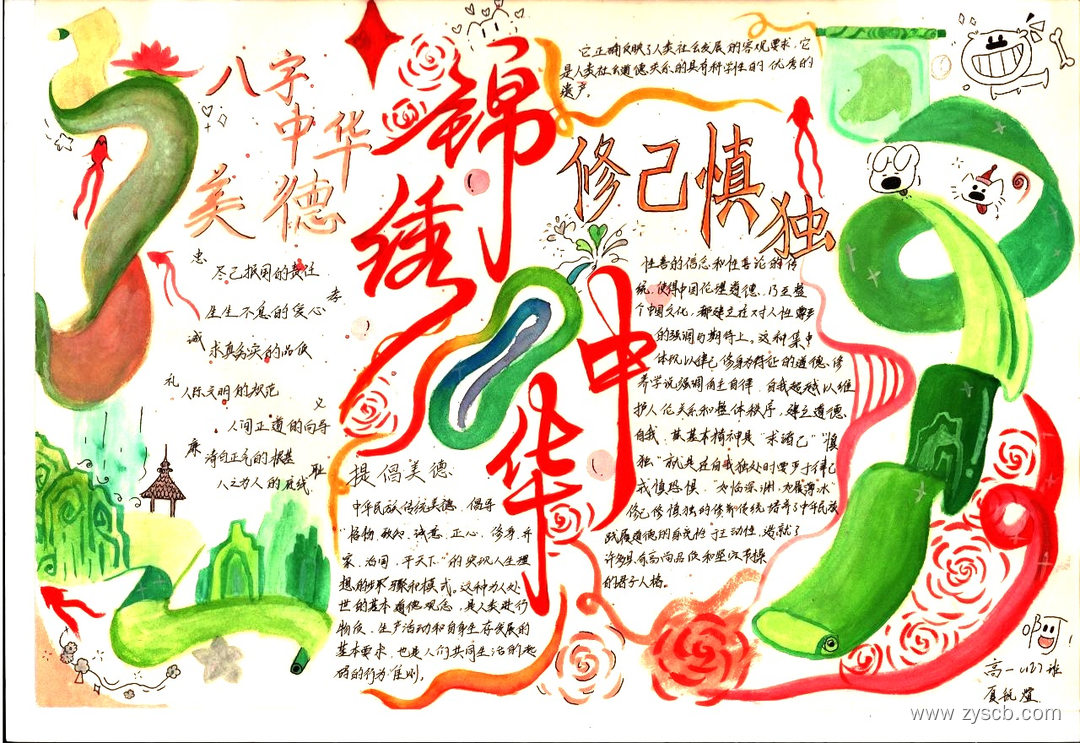 八字
中华
美德
锦
绣
中
华
它正确反映了人类社会发展的客观要求，它
是人类社会道德关系的具有科学性的优秀的
遗产。
修己慎独
忠
尽己报国的责任
孝
生生不息的爱心
诚
求真务实的品质
礼
人际文明的规范
义
人间正道的向导
廉
清白正气的根基
耻
人之为人的底线
提倡美德
中华民族传统美德，倡导
"格物、致知、诚意、正心、修身、齐
家、治国、平天下"的实现人生理
想的步骤和模式。这种为人处
世的基本道德观念，是人类进行
物质、生产活动和自身生存发展的
基本要求，也是人们共同生活的起
码的行为准则。
性善的信念和性善论的传
统，使得中国伦理道德，乃至整
个中国文化，都建立在对人性
的强调与期待上。这种集中
体现以律己修身为特征的道德修
养学说强调自主自律，自我超越以维
护人伦关系和整体秩序，建立道德
自我，其基本精神是"求诸己""慎
独"就是在自我独处时要严于律己
戒慎恐惧，"如临深渊，如履薄冰"
修己慎独的修养传统培养了中华民族
践履道德的自觉性与主动性，造就了
许多具有高尚品质和坚定节操
的君子人格。
啊
高一 班
www.zyscb.com